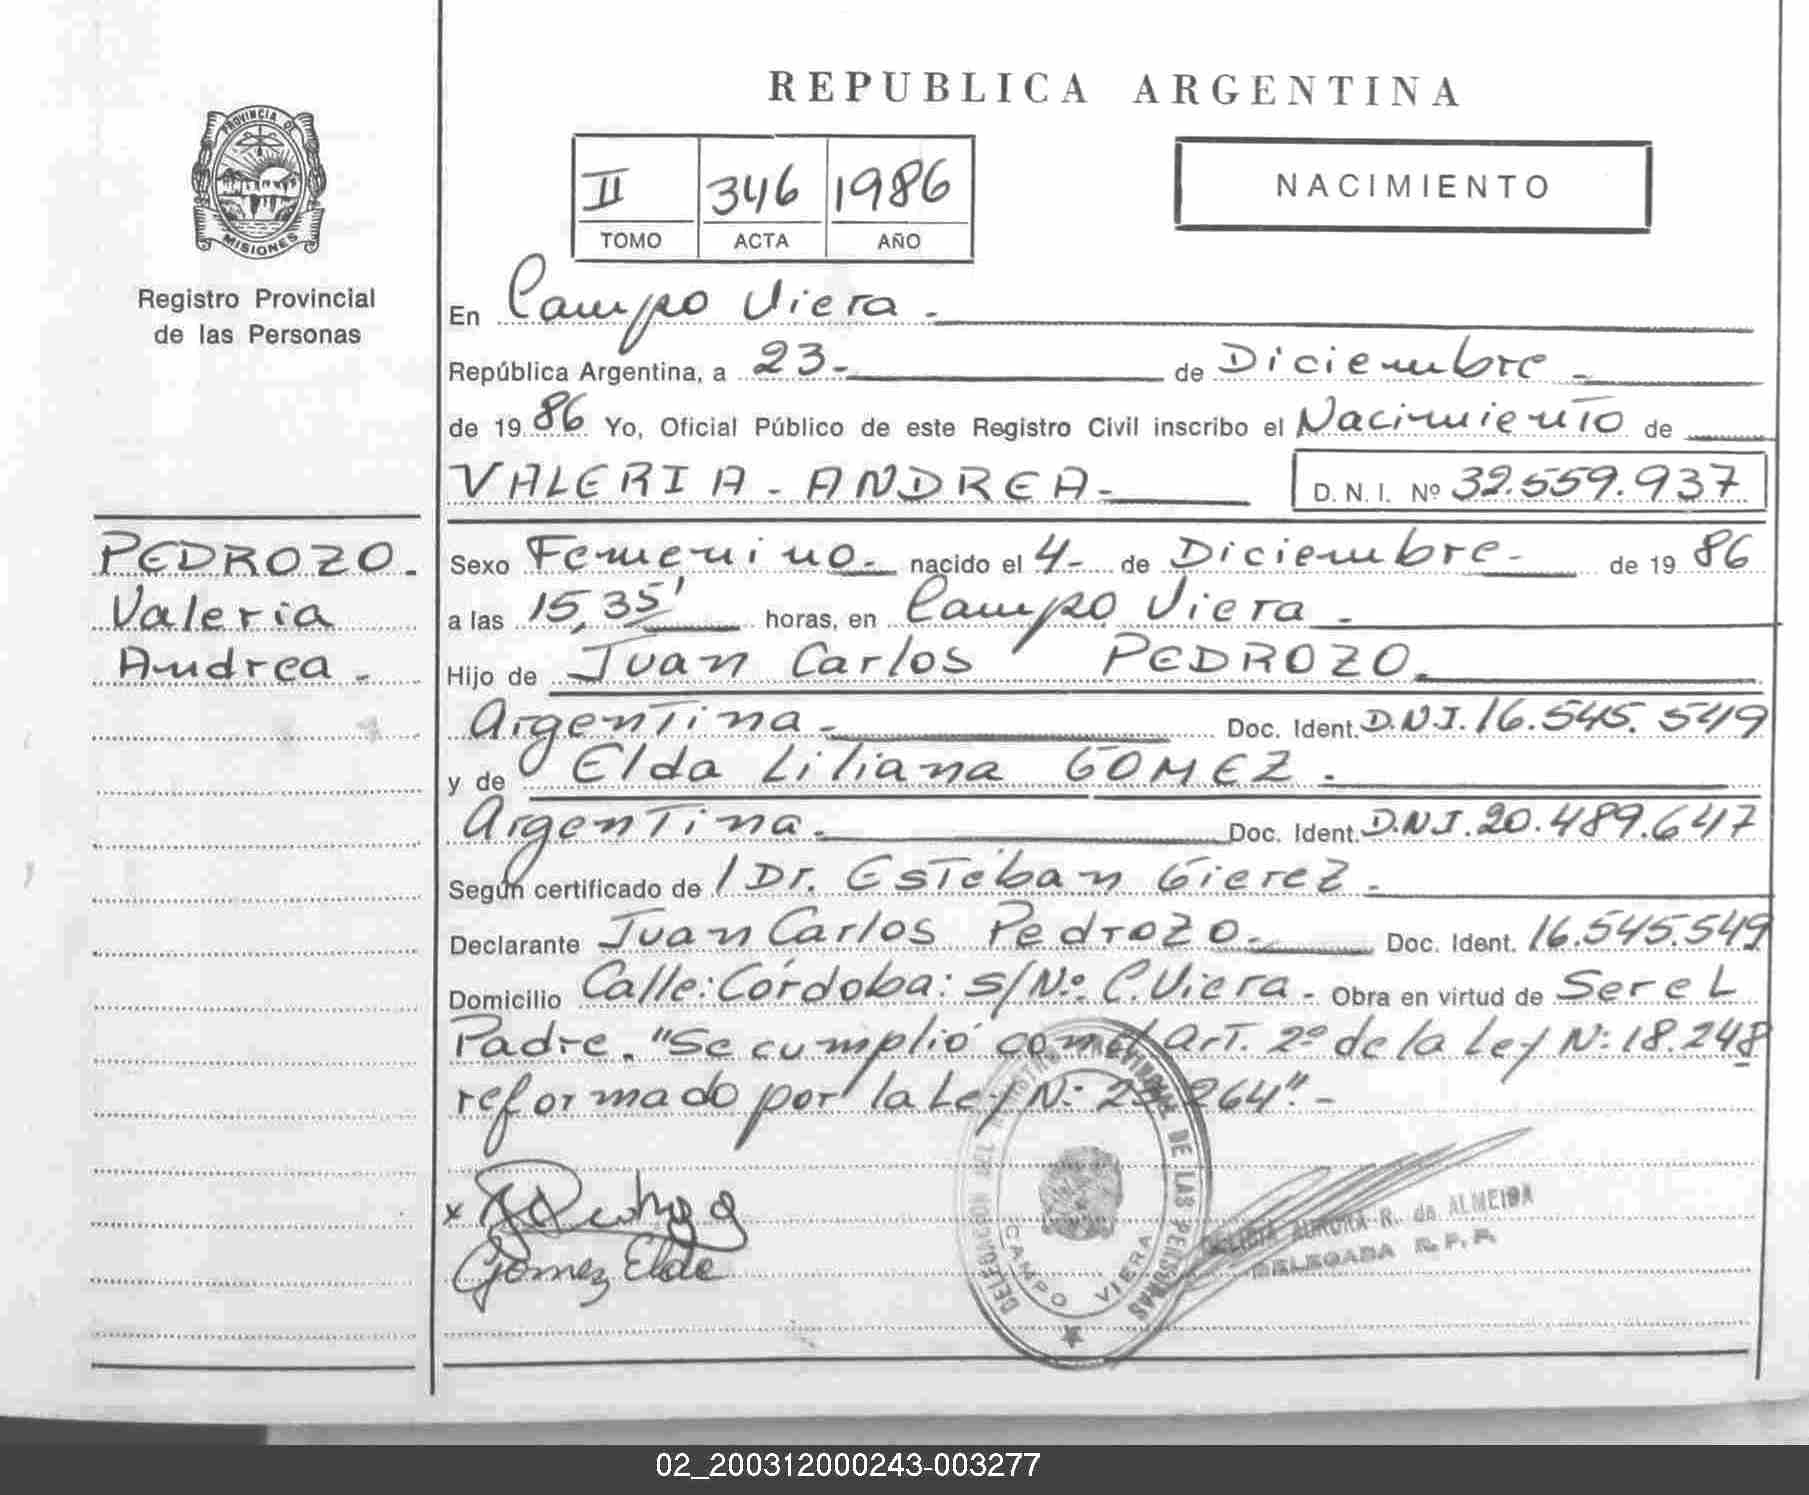 REPUBLICA ARGENTINA
PROVINCIA DE
MISIONES
Registro Provincial
de las Personas
II 346 1986
TOMO ACTA AÑO
NACIMIENTO
En Campo Viera.
República Argentina, a 23- de Diciembre
de 19 86 Yo, Oficial Público de este Registro Civil inscribo el Nacimiento de
VALERIA - ANDREA - D. N. I. Nº 32.559.937
PEDROZO.
Valeria
Andrea.
Sexo Femenino. nacido el 4- de Diciembre de 19 86
a las 15,35' horas, en Campo Viera.
Hijo de Juan Carlos PEDROZO.
Argentina. Doc. Ident. D.N.I. 16.545.549
y de Elda Liliana GOMEZ.
Argentina. Doc. Ident. D.N.I. 20.489.647
Según certificado de / Dr. Esteban Gierez.
Declarante Juan Carlos Pedrozo. Doc. Ident. 16.545.549
Domicilio Calle: Córdoba: s/Nº. C. Viera - Obra en virtud de Ser el
Padre. "Se cumplió con el ArT. 2º de la Ley N: 18.248
reformado por la Ley N: 23.264". -
x
Gomez Elda
CAMPO VIERA
AURORA R. de ALMEIDA
DELEGADA R. P. P.
02_200312000243-003277